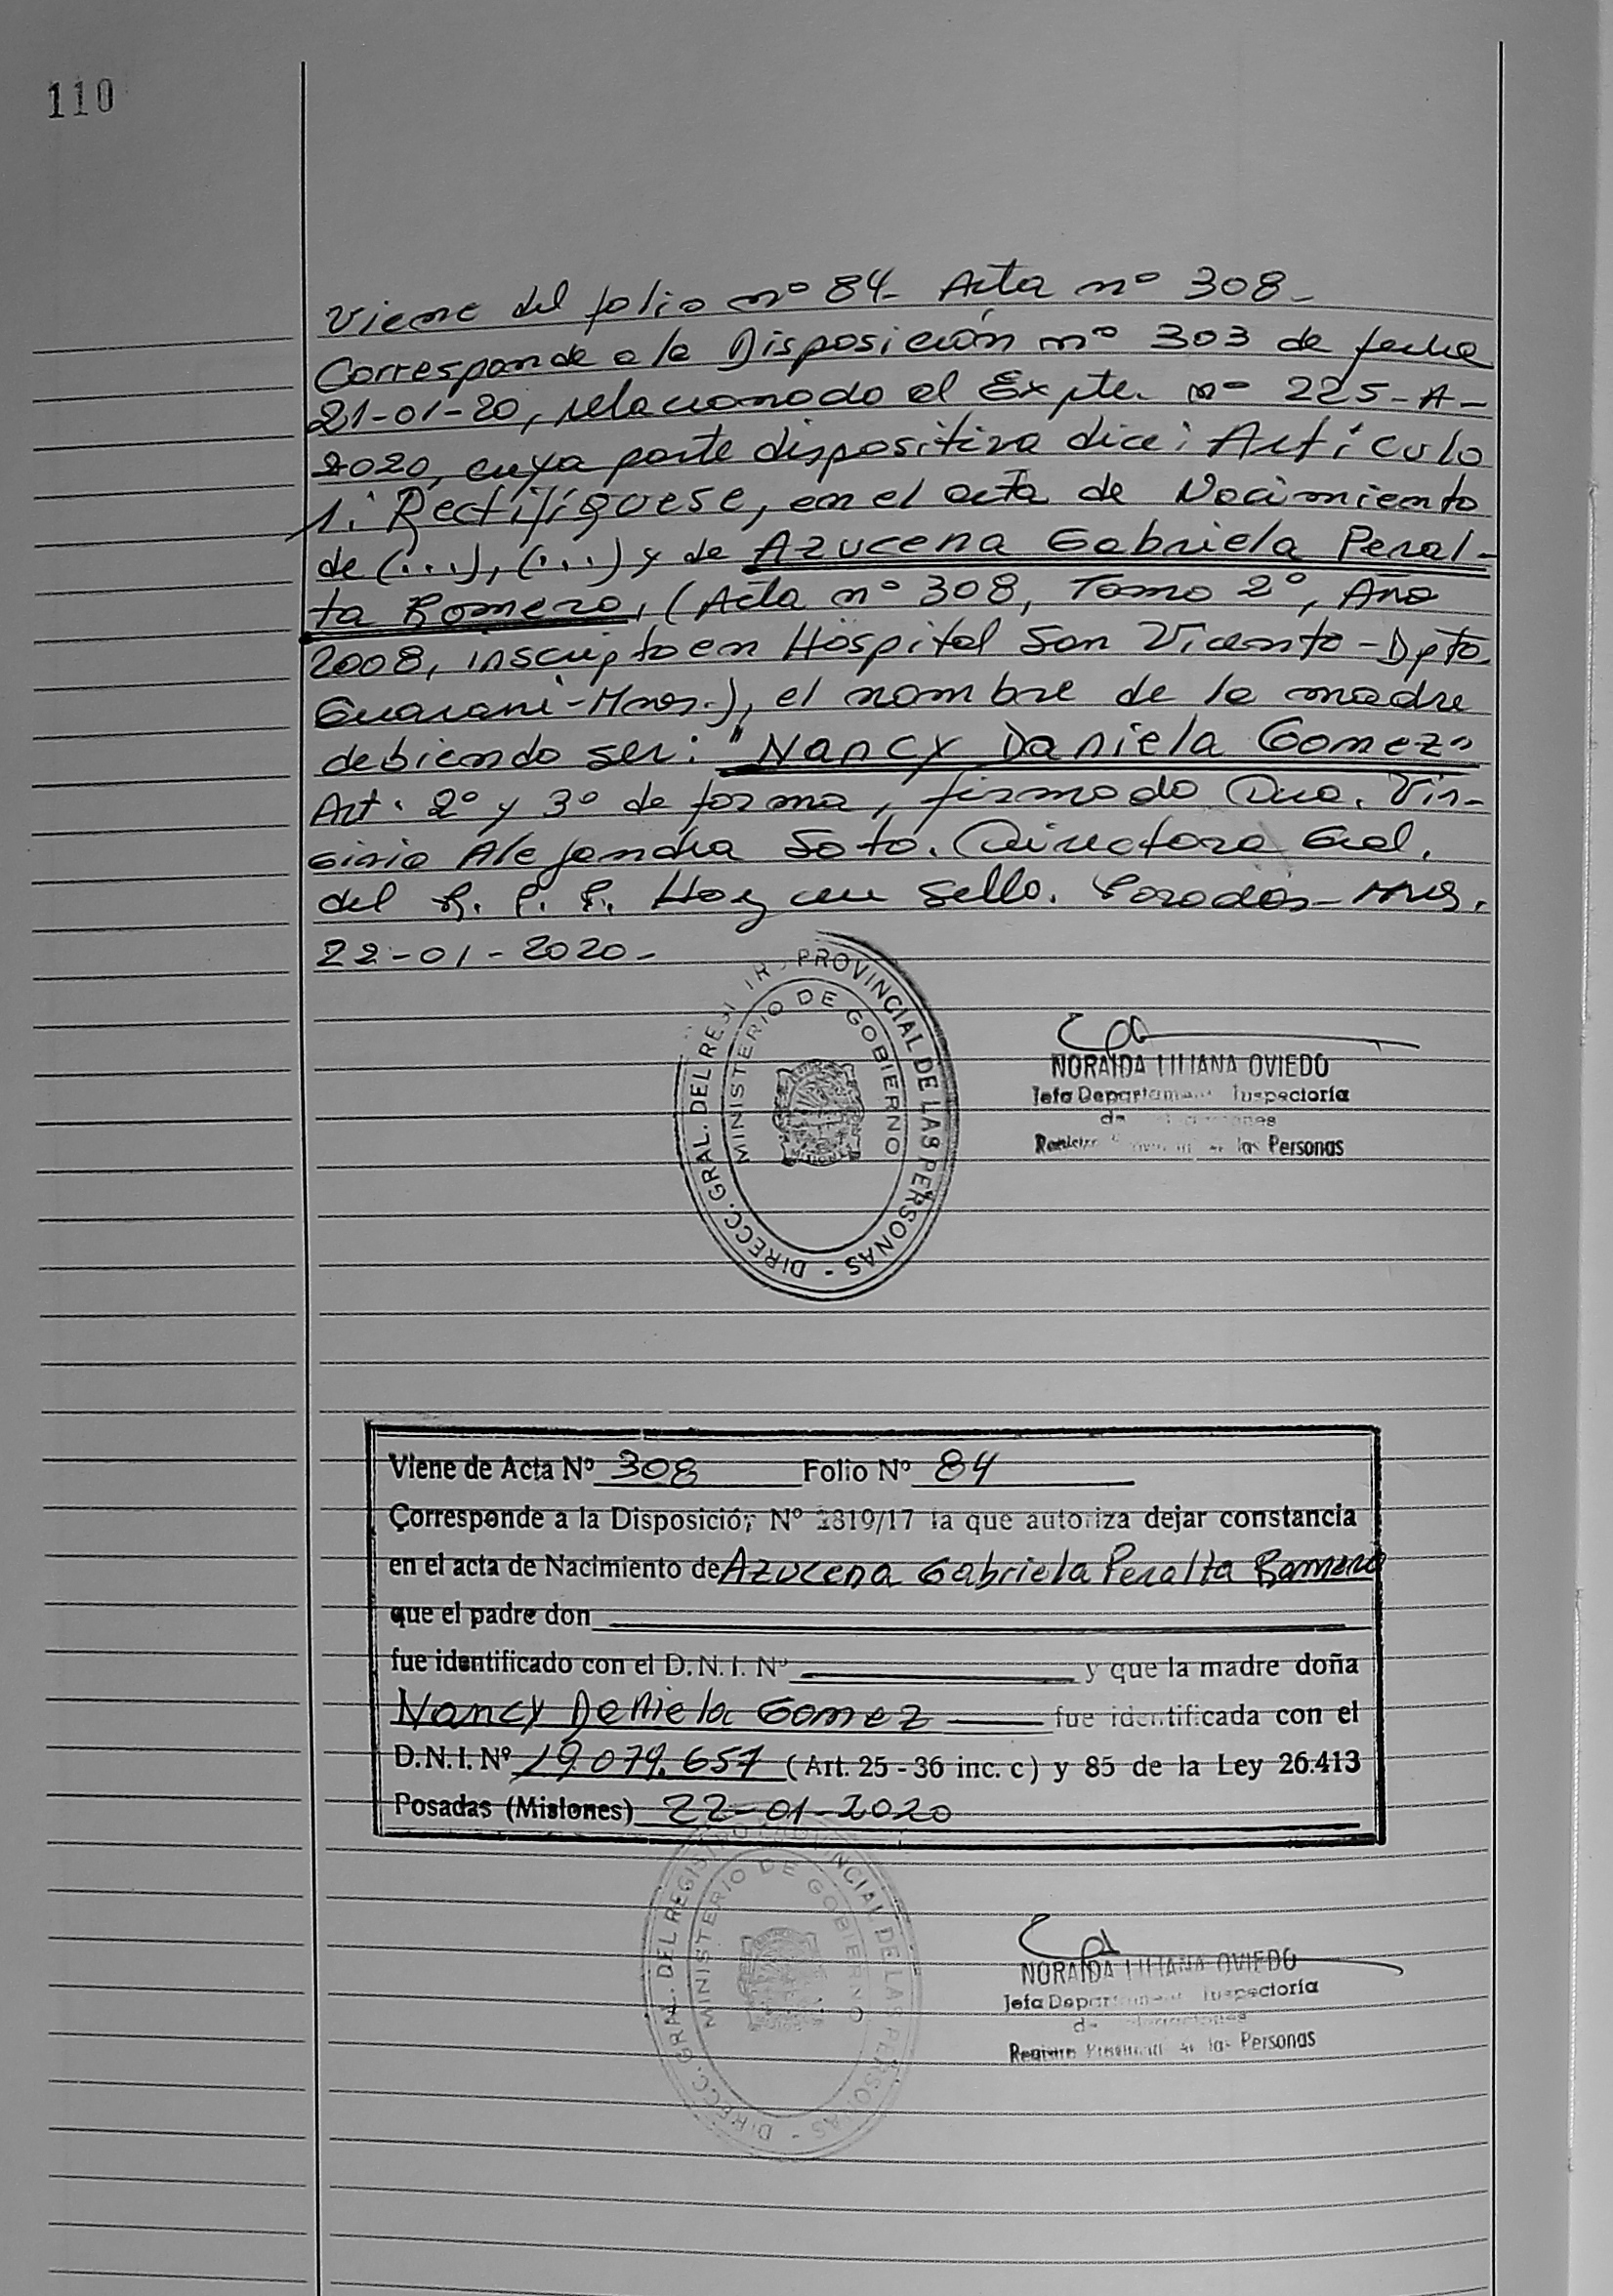 110
Viene del folio nº 84- Acta nº 308-
Corresponde a la Disposición nº 303 de fecha
21-01-20, relacionado al Expte. nº 225-A-
2020, cuya parte dispositiva dice: Artículo
1: Rectifíquese, en el acta de Nacimiento
de (...), (...) y de Azucena Gabriela Peral-
ta Romero, (Acta nº 308, Tomo 2º, Año
2008, inscripto en Hospital San Vicente-Dpto
Guaraní-Mnes.), el nombre de la madre
debiendo ser: "Nancy Daniela Gomez"
Art. 2º y 3º de forma, firmado Dra. Vir-
ginia Alejandra Soto. Directora Gral.
del R. P. P. Hay un sello. Posadas-Mnes.
22-01-2020-
DIRECC. GRAL. DEL PROVINCIAL DE LAS PERSONAS -
MINISTERIO DE GOBIERNO
NORAIDA LILIANA OVIEDO
Jefa Inspectoría
de
las Personas
Viene de Acta Nº 308 Folio Nº 84
Corresponde a la Disposición Nº 1819/17 la que autoriza dejar constancia
en el acta de Nacimiento de Azucena Gabriela Peralta Romero
que el padre don
fue identificado con el D.N.I. Nº y que la madre doña
Nancy Daniela Gomez fue identificada con el
D.N.I. Nº 19.079.657 (Art. 25-36 inc. c) y 85 de la Ley 26.413
Posadas (Misiones) 22-01-2020
DIRECC. GRAL. DEL REGISTRO PROVINCIAL DE LAS PERSONAS -
MINISTERIO DE GOBIERNO
NORAIDA LILIANA OVIEDO
Jefa Inspectoría
de
las Personas